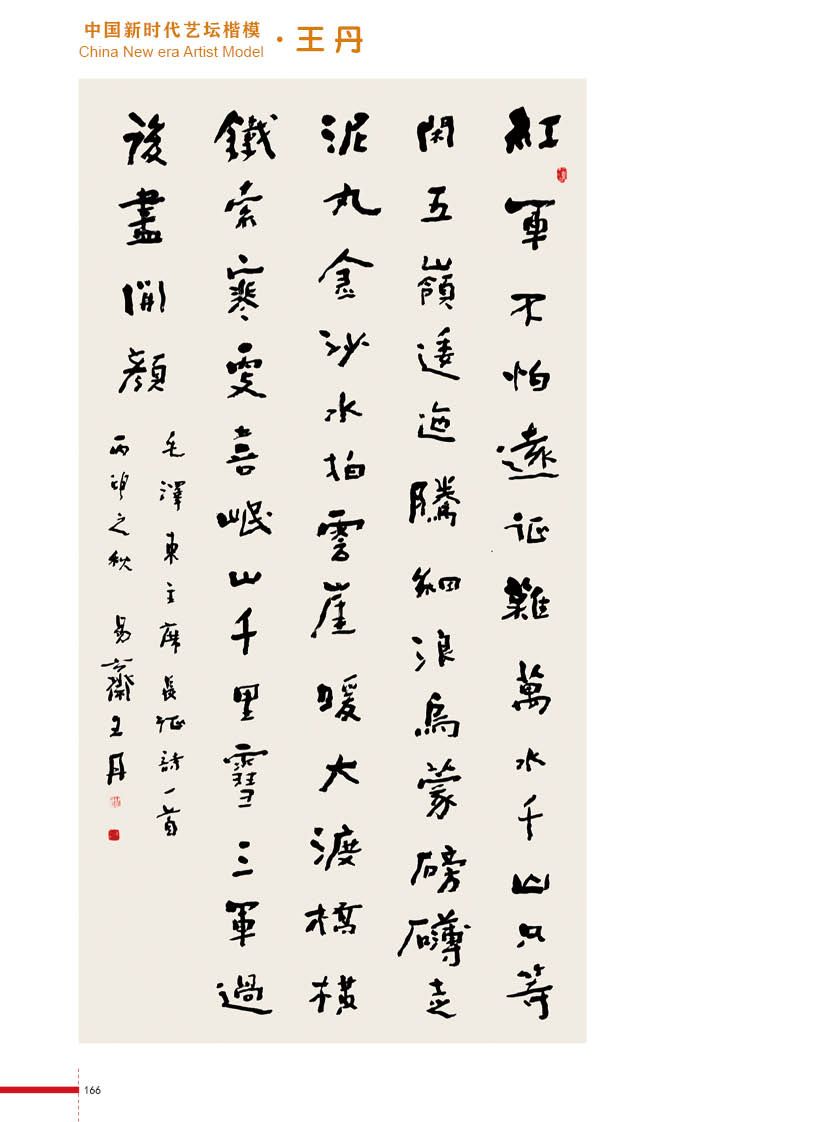 中国新时代艺坛楷模
China New era Artist Model
·王丹
紅軍不怕遠征難萬水千山只等
閑五嶺逶迤騰細浪烏蒙磅礴走
泥丸金沙水拍雲崖暖大渡橋橫
鐵索寒更喜岷山千里雪三軍過
後盡開顏
毛澤東主席長征詩一首
丙申之秋 易齋王丹
166